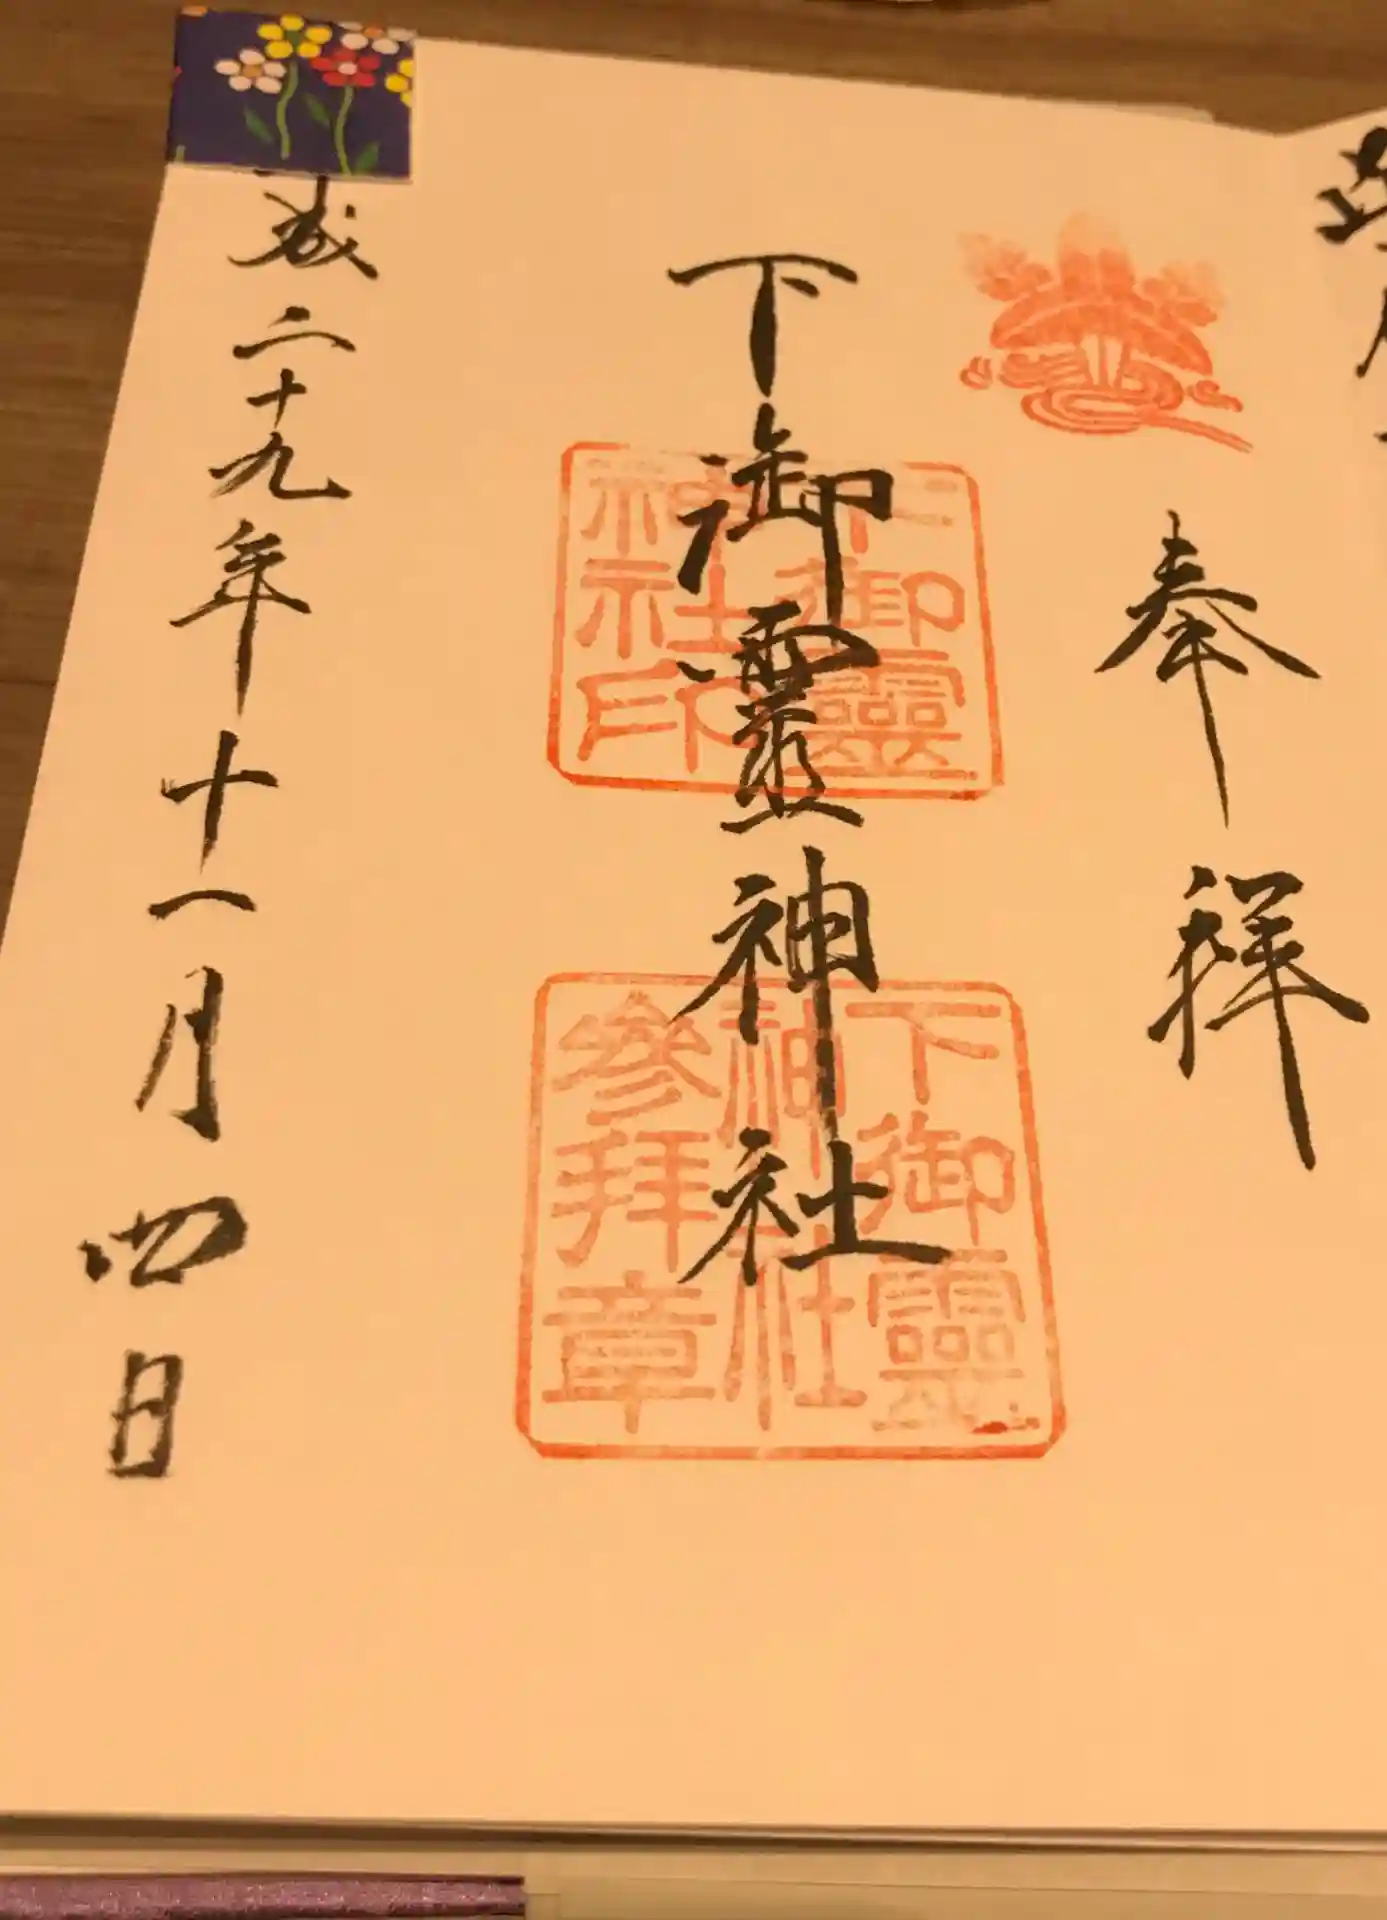 奉拝
下御靈神社
下御靈
神社印
下御靈
神社
參拜章
成二十九年十一月四日